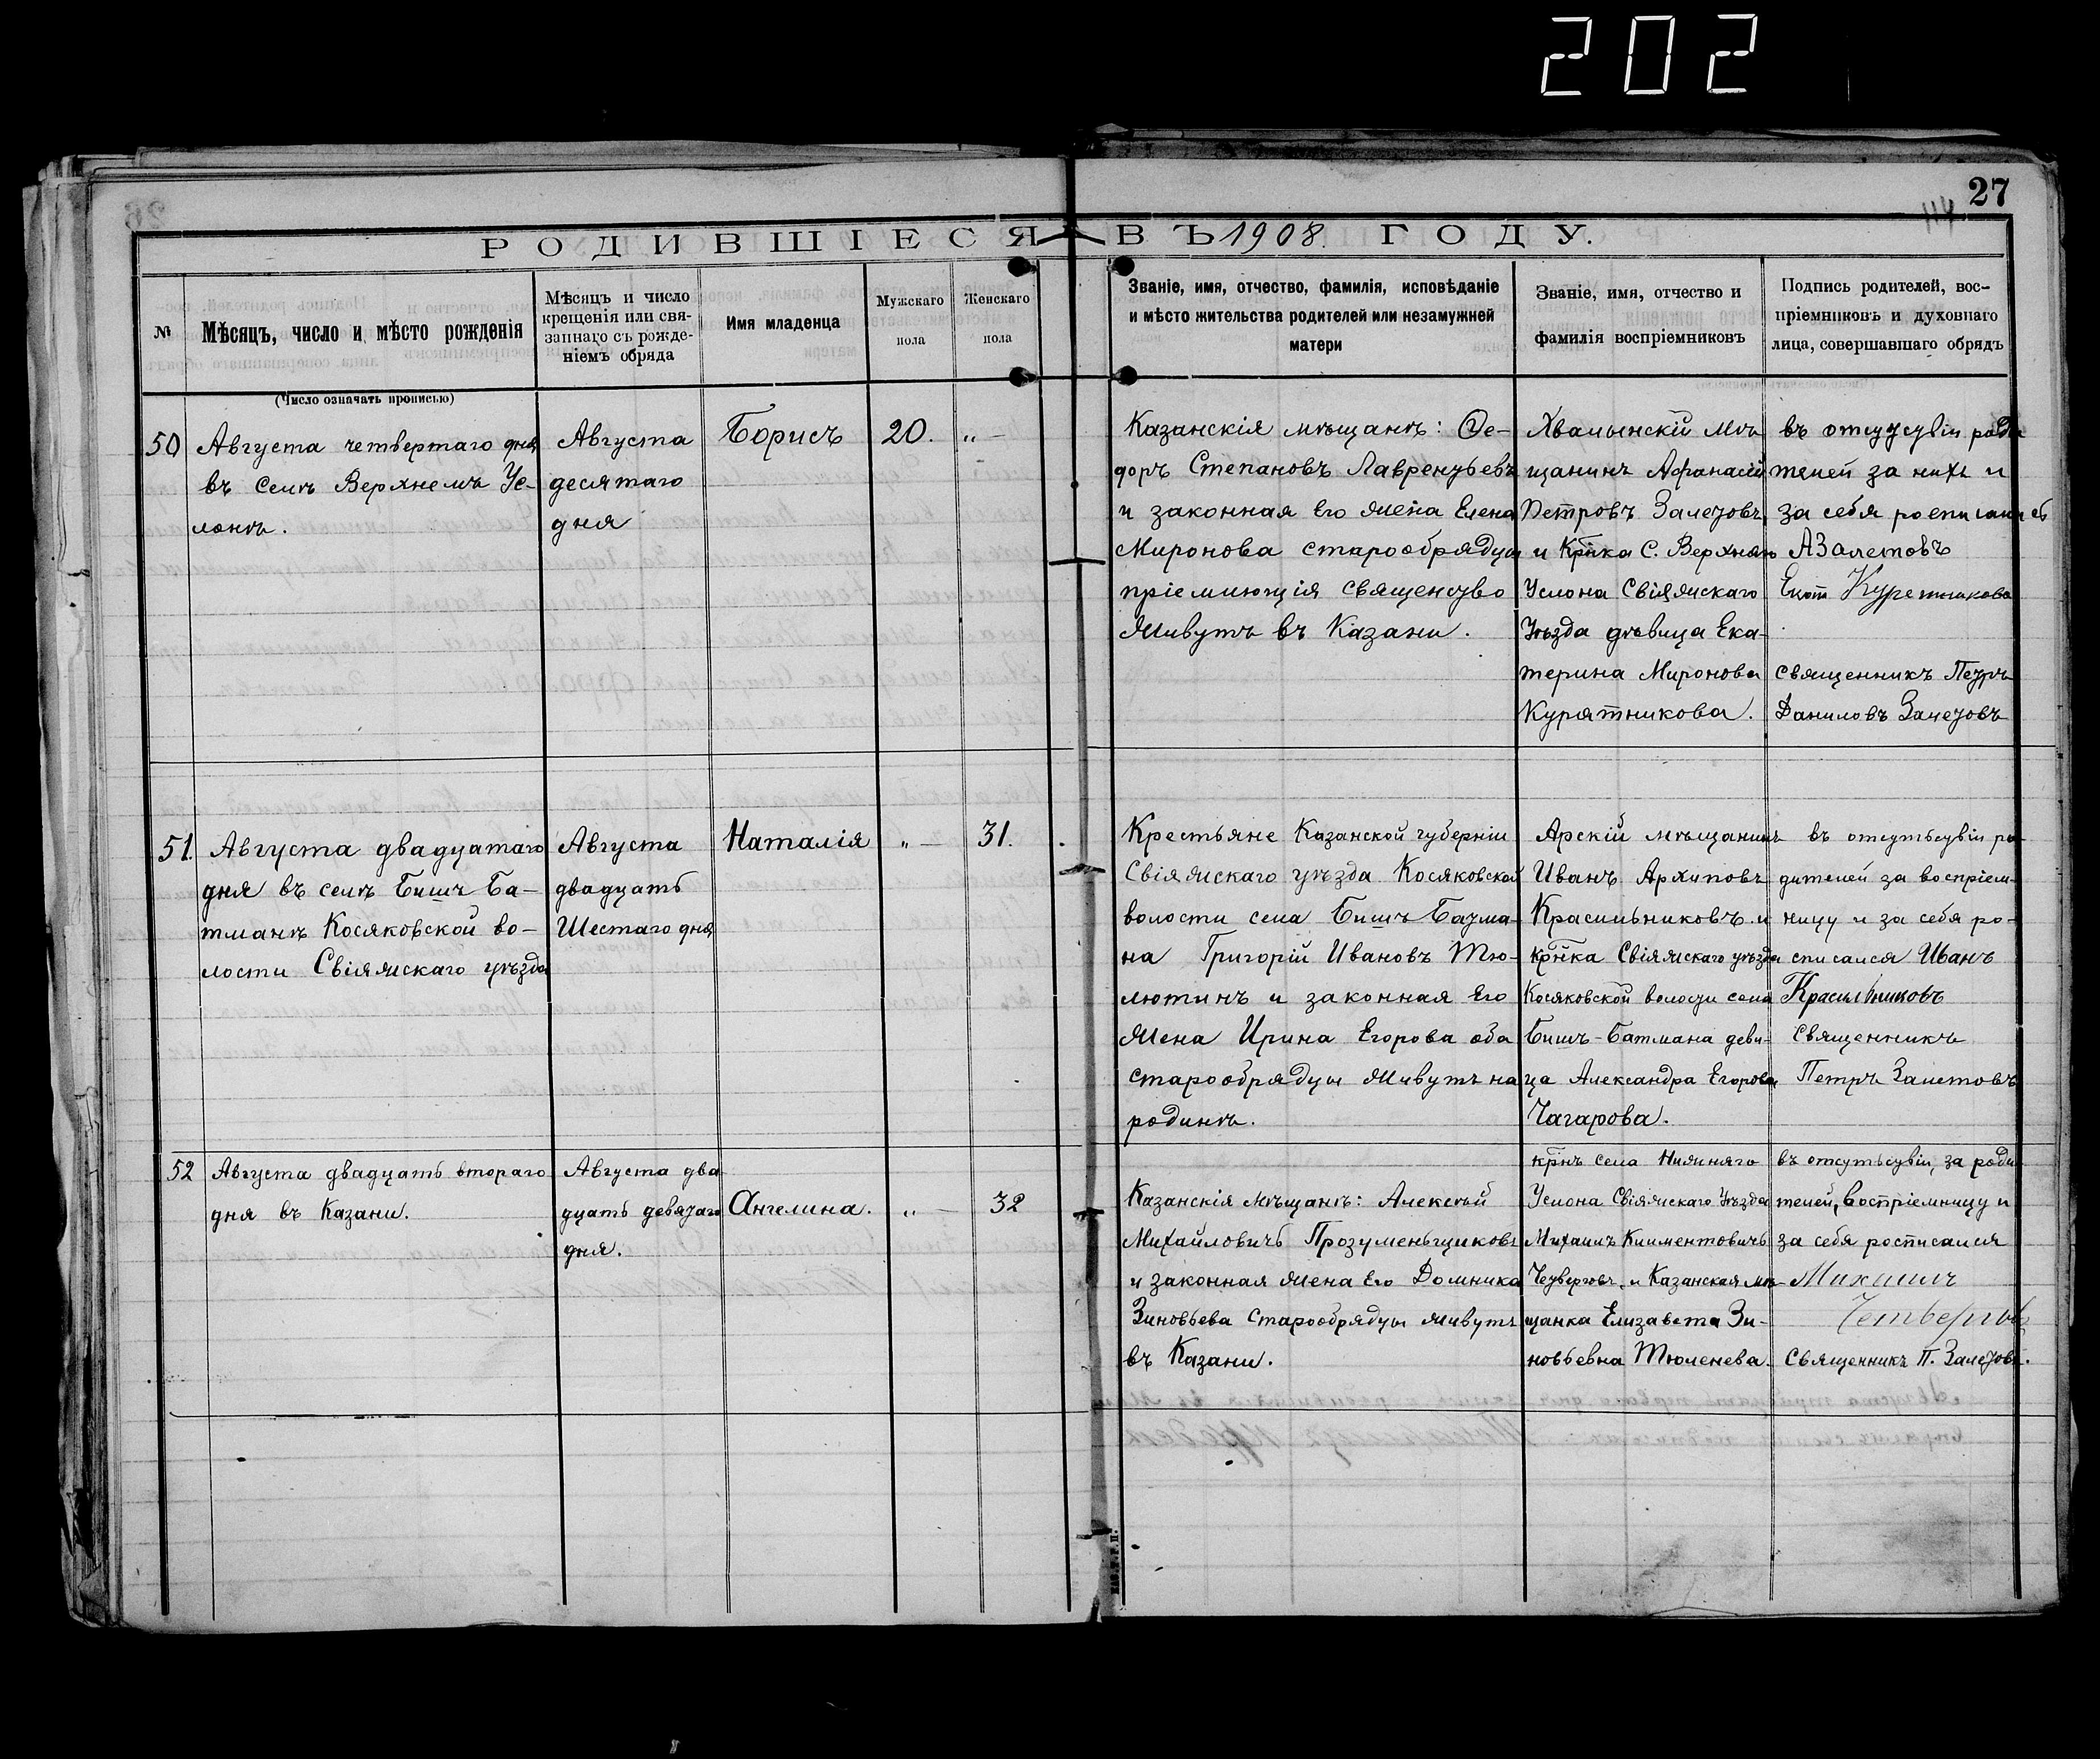 202
27
РОДИВШІЕСЯ ВЪ 1908. ГОДУ.
№
Мѣсяцъ, число и мѣсто рожденія
Мѣсяцъ и число
крещенія или свя-
заннаго съ рожде-
ніемъ обряда
Имя младенца
Мужскаго
пола
Женскаго
пола
Званіе, имя, отчество, фамилія, исповѣданіе
и мѣсто жительства родителей или незамужней
матери
Званіе, имя, отчество и
фамилія воспріемниковъ
Подпись родителей, вос-
пріемниковъ и духовнаго
лица, совершавшаго обрядъ
(Число означать прописью)
50
Августа четвертаго дня
въ селѣ Верхнемъ Ус-
лонѣ.
Августа
десятаго
дня
Борисъ
20.
„ —
Казанскія мѣщанѣ: Ѳе-
доръ Степановъ Лаврентьевъ
и законная его жена Елена
Миронова старообрядцы
пріемлющія священство
живутъ въ Казани.
Хвалынскій мѣ
щанинъ Афанасій
Петровъ Залетовъ,
и Крнка С. Верхняго
Услона Свіяжскаго
Уѣзда дѣвица Ека-
терина Миронова
Курятникова.
въ отсутствіи роди
телей за нихъ и
за себя росписались
АЗалетовъ
Екат Курятникова
священникъ Петръ
Даниловъ Залетовъ
51.
Августа двадцатаго
дня въ селѣ Бишъ Ба-
тманѣ Косяковской во-
лости Свіяжскаго уѣзда
Августа
двадцать
Шестаго дня
Наталія
„ —
31.
Крестьяне Казанской губерніи
Свіяжскаго уѣзда Косяковской
волости села Бишъ Батма-
на Григорій Ивановъ Тю-
лютинъ и законная Его
жена Ирина Егорова оба
старообрядцы живутъ на
родинѣ.
Арскій мѣщанинъ
Иванъ Архиповъ
Красильниковъ и
крнка Свіяжскаго уѣзда
Косяковской волости села
Бишъ-Батмана деви-
ца Александра Егорова
Чагарова.
въ отсутьствіи ро-
дителей за воспріем-
ницу и за себя ро-
списался Иванъ
Красильниковъ
Священникъ
Петръ Залетовъ
52
Августа двадцать втораго
дня въ Казани.
Августа два
дцать девятаго
дня.
Ангелина.
„ —
32
Казанскія мѣщанѣ: Алексѣй
Михайловичъ Прозументщиковъ
и законная жена Его Домника
Зиновьева старообрядцы живутъ
въ Казани.
крнъ села Нижняго
Услона Свіяжскаго Уѣзда
Михаилъ Климентовичъ
Четверговъ и Казанская мѣ-
щанка Елизавета Зи-
новьевна Тюленева.
въ отсутьствіи, за роди
телей, воспріемницу и
за себя росписался
Михаилъ
Четверговъ
священникъ П. Залетовъ.